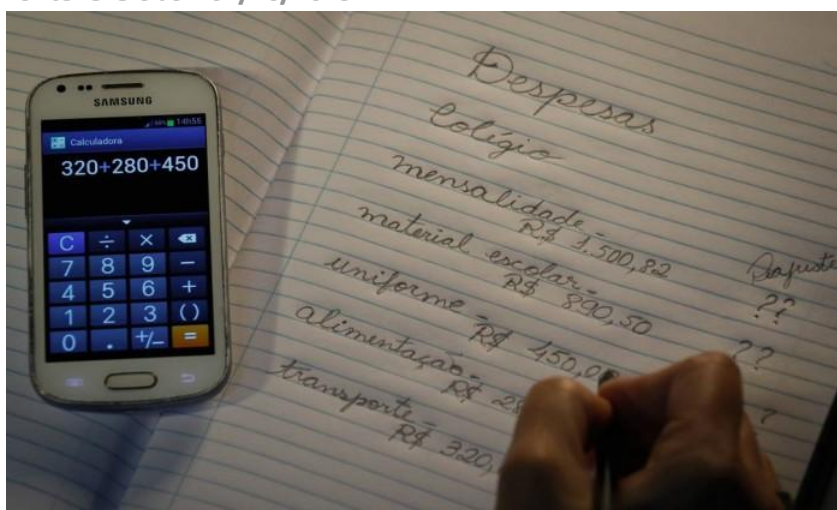 SAMSUNG
14h55
Calculadora
320+280+450
C ÷ ×
7 8 9 −
4 5 6 +
1 2 3 ()
0 . +/− =
Despesas
Colégio
mensalidade -
R$ 1.500,82
Reajuste
material escolar -
R$ 890,50
??
uniforme -
R$ 450,0
??
alimentação -
R$ 28
?
transporte -
R$ 320,